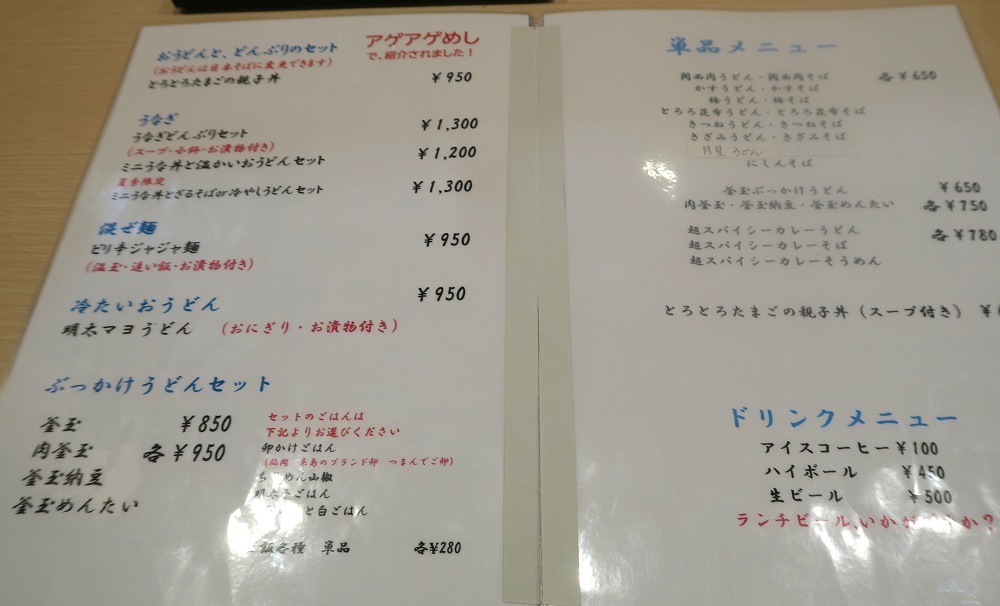 おうどんと、どんぶりのセット
アゲアゲめし
で、紹介されました！
(おうどんは日本そばに変更できます)
とろとろたまごの親子丼 ￥950
うなぎ
うなぎどんぶりセット ￥1,300
(スープ・小鉢・お漬物付き)
ミニうな丼と温かいおうどんセット ￥1,200
夏季限定
ミニうな丼とざるそばor冷やしうどんセット ￥1,300
混ぜ麺
ピリ辛ジャジャ麺 ￥950
(温玉・追い飯・お漬物付き)
冷たいおうどん ￥950
明太マヨうどん (おにぎり・お漬物付き)
ぶっかけうどんセット
釜玉 ￥850
肉釜玉 各￥950
釜玉納豆
釜玉めんたい
セットのごはんは
下記よりお選びください
卵かけごはん
(福岡 糸島のブランド卵 つまんでご卵)
ちりめん山椒
明太子ごはん
と白ごはん
飯各種 単品 各¥280
単品メニュー
関西肉うどん・関西肉そば 各￥650
かすうどん・かすそば
梅うどん・梅そば
とろろ昆布うどん・とろろ昆布そば
きつねうどん・きつねそば
きざみうどん・きざみそば
月見うどん
にしんそば
釜玉ぶっかけうどん ￥650
肉釜玉・釜玉納豆・釜玉めんたい 各￥750
超スパイシーカレーうどん 各￥780
超スパイシーカレーそば
超スパイシーカレーそうめん
とろとろたまごの親子丼(スープ付き) ￥
ドリンクメニュー
アイスコーヒー￥100
ハイボール ￥450
生ビール ￥500
ランチビール、いかがでうか？